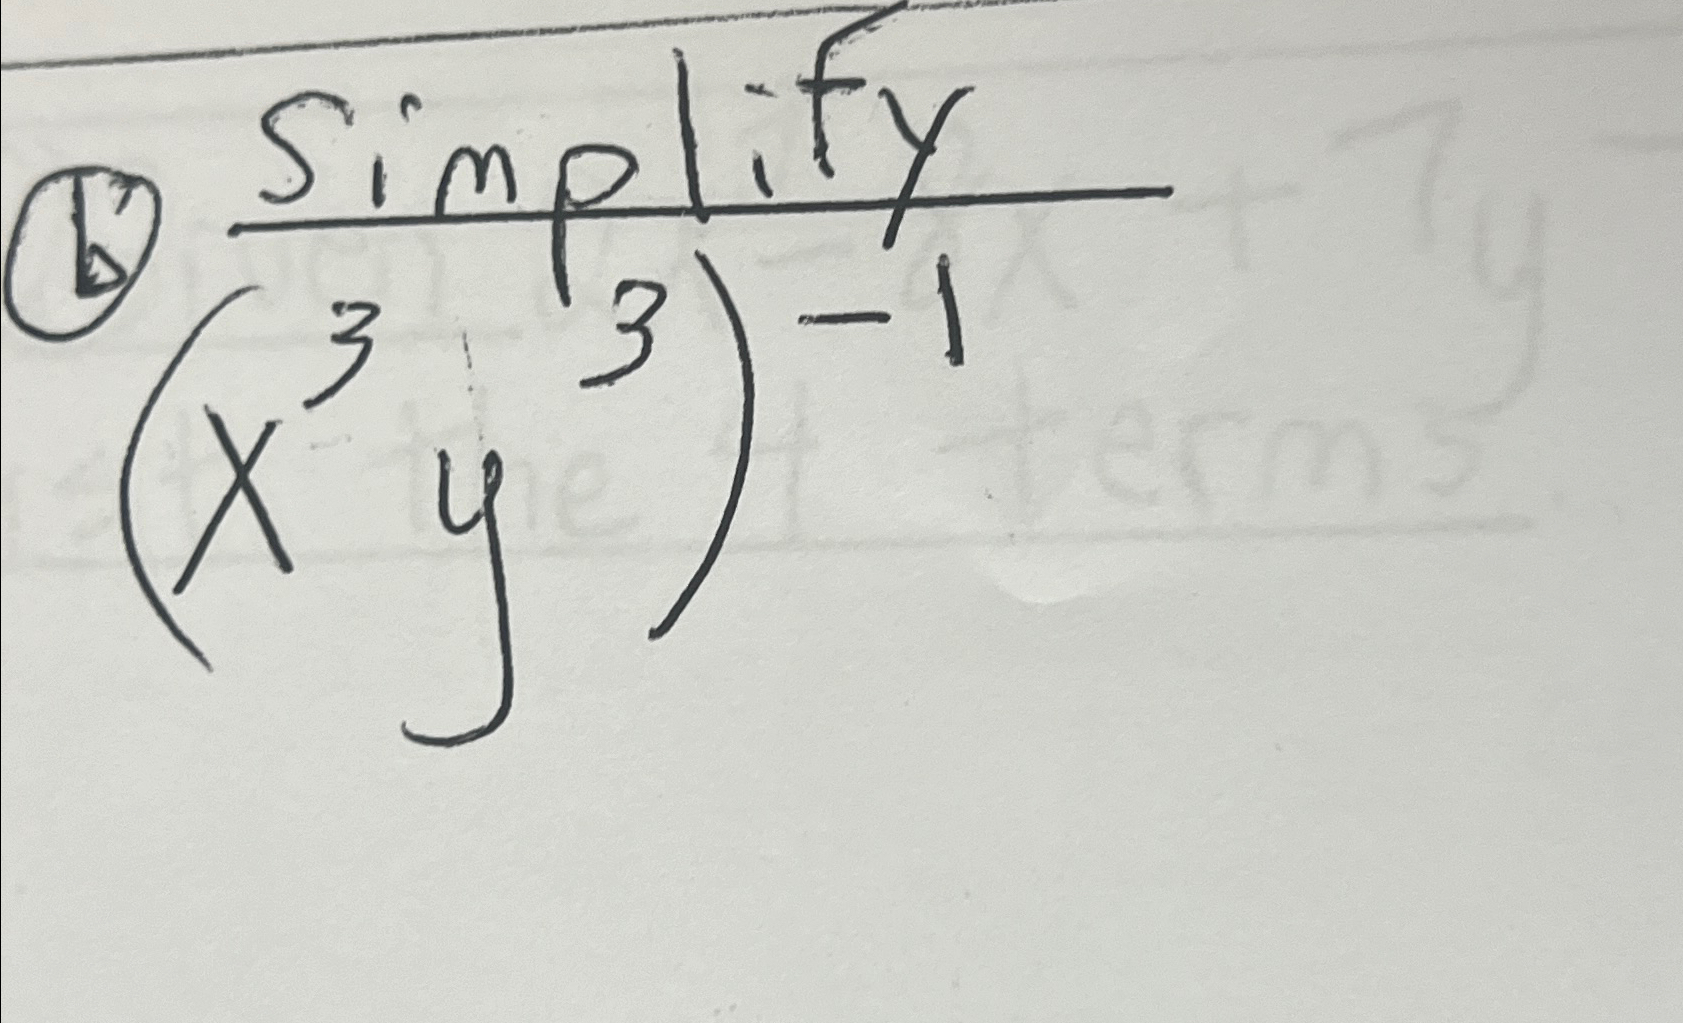 b Simplify
(x³ y³)⁻¹